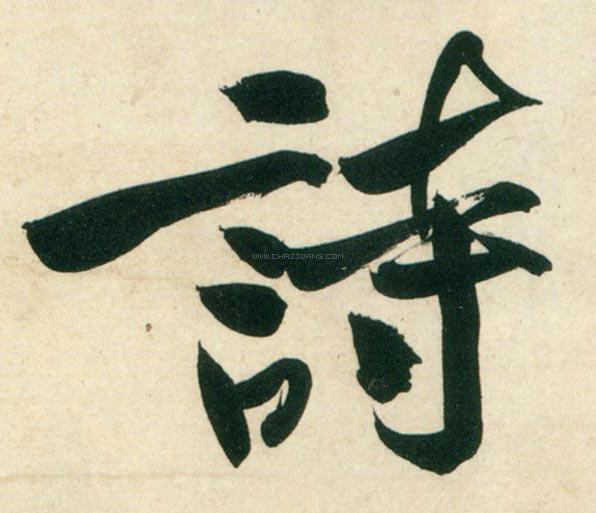 詩
WWW.CHAZIWANG.COM